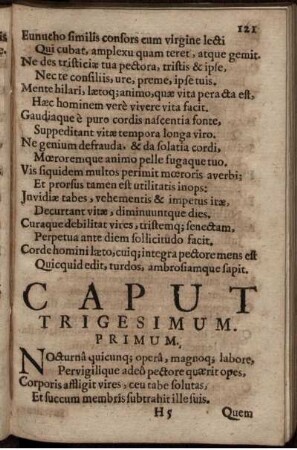 121
Eunucho similis consors cum virgine lecti
Qui cubat, amplexu quam teret, atque gemit.
Ne des tristiciæ tua pectora, tristis & ipse,
Nec te consiliis, ure, preme, ipse tuis.
Mente hilari, lætoq; animo, quæ vita peracta est,
Hæc hominem verè vivere vita facit.
Gaudiaque è puro cordis nascentia fonte,
Suppeditant vitæ tempora longa viro.
Ne genium defrauda, & da solatia cordi,
Mœroremque animo pelle fugaque tuo.
Vis siquidem multos perimit mœroris acerbi;
Et prorsus tamen est utilitatis inops:
Jnvidiæ tabes, vehementis & impetus iræ,
Decurtant vitæ, diminuuntque dies.
Curaque debilitat vires, tristemq; senectam,
Perpetua ante diem sollicitudo facit.
Corde homini læto, cuiq; integra pectore mens est
Quicquid edit, turdos, ambrosiamque sapit.
CAPUT
TRIGESIMUM.
PRIMUM.
NOcturnâ quicunq; operâ, magnoq; labore,
Pervigilique adeò pectore quærit opes,
Corporis affligit vires, ceu tabe solutas,
Et succum membris subtrahit ille suis.
H 5 Quem